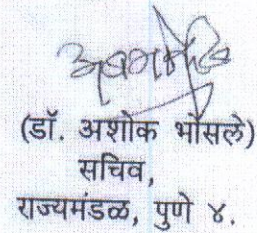 (डॉ. अशोक भोसले)
सचिव,
राज्यमंडळ, पुणे ४.